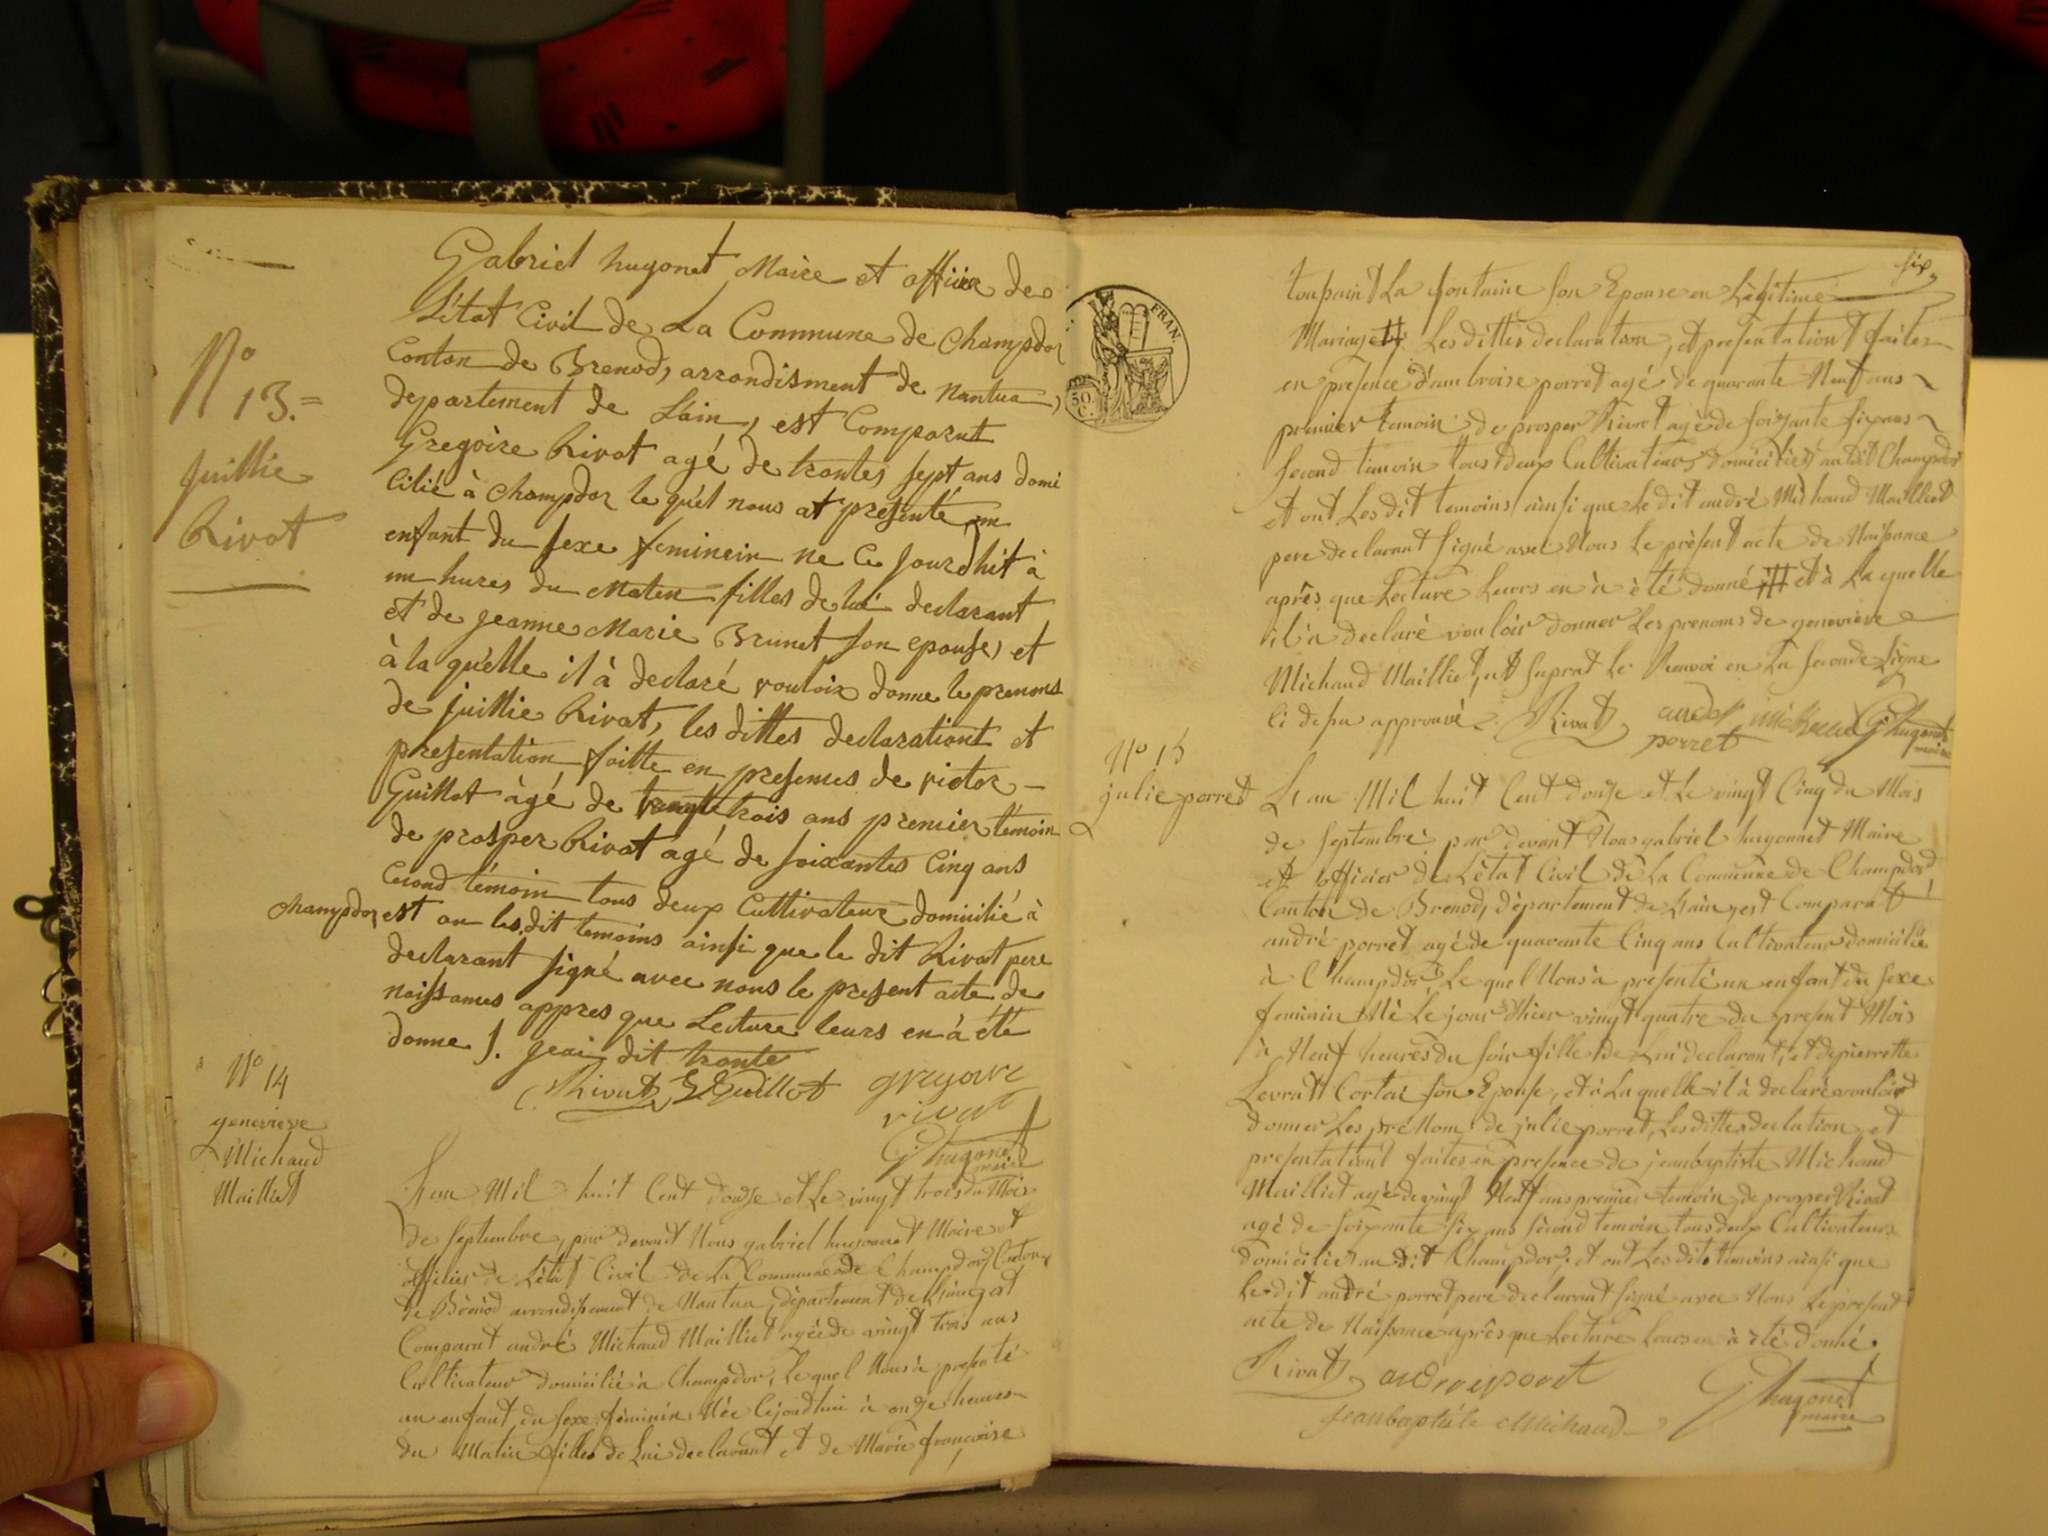 Gabriel hugonet Maire et officier de
L'état Civil de La Commune de Champdor
Conton de Brenod, arrondisment de Nantua,
departement de Lain, est Comparut
N° 13.=
Juillie
Rivat
Gregoire Rivat agé de trantes sept ans domi
cilié à Champdor le quél nous at presenté un
enfant du sexe feminein ne Ce Jourdhit à
un hures du Maten filles de lui declarant
et de jeanne Marie Brunet son epouse, et
à la quélle il à declaré vouloir donne le prenoms
de juillie Rivat, les dittes declarationt et
presentation faitte en presenus de victor-
Guillot àgé de trante trois ans premier témoin
de prosper Rivat agé de soixantes Cinq ans
Cecond témoin tous deux Cultivateur domicilié à
Champdor est on les dit temoins ainsi que le dit Rivat pere
declarant signé avec nous le present acte de
naissames appres que Lecture leurs en à été
donne J. jeai dit trante
Rivat Guillot gregoire
rivat
G hugonet
maire
N° 14
genevieve
Michaud
Mailliet
L'an Mil huit Cent douze et Le vingt trois du Mois
de Septembre, par devant Nous gabriel hugonnet Maire et
officier de L'état Civil de La Commune de Champdor, Canton
de Brénod arrondissement de Nantua, département de L'ain, est
Comparut andré Michaud Mailliet agé de vingt trois ans
Cultivateur domicilié à Champdor, Le quel Nous à presenté
un enfant du sexe féminin Née Cejourdhui à onze heures
du Matin filles de Lui declarant et de Marie françoise
six
toupaint La fontaine son Epouse en Légitime
Mariage # Les dittes declaration, et presentationt faites
en presence d'ambroise porret agé de quarante Neuf ans
premier temoin de prosper Rivat agé de soixante six ans
second temoin tous deux Cultivateurs domiciliés au dit Champdor
et ont Les dit temoins ainsi que Le dit andré Michaud Mailliet
pere declarant signé avec Nous Le présent acte de Naissance
après que Lecture Leurs en à été donné, # et à La quelle
il a declaré vouloir donner Les prenoms de genevieve
Michaud Mailliet, Le Renvoi en La seconde Ligne
ci dessu approuvé. Rivat andré michaud G hugonet
porret maire
N° 15
julie porret
L'an Mil huit Cent douze et Le vingt Cinq du Mois
de Septembre, par devant Nous gabriel hugonnet Maire
et officier de L'état Civil de La Commune de Champdor
Canton de Brenod, département de L'ain, est Comparut
andré porret agé de quarante Cinq ans Cultivateur domicilié
à Champdor Le quel Nous à presenté un enfant du sexe
feminin Né Le jour d'hier vingt quatre du present Mois
à Neuf heures du soir fille de Lui declarant, et de pierrette
Levratt Cortai son Epouse, et à La quelle il à declaré vouloir
donner Les préNom de julie porret, Les dittes declation et
presentationt faites en presence de jeanbaptiste Michaud
Mailliet agé de vingt Neuf ans premier temoin, de prosper Rivat
agé de soixante six ans second temoin, tous deux Cultivateurs
domiciliés au dit Champdor, et ont Les dits temoins ainsi que
Le dit andré porret pere declarant signé avec Nous Le present
acte de Naissance après que Lecture Leurs en à été donné.
Rivat andrée poret G hugonet
maire
jeanbaptiste Michaud
FRAN.
50
C.